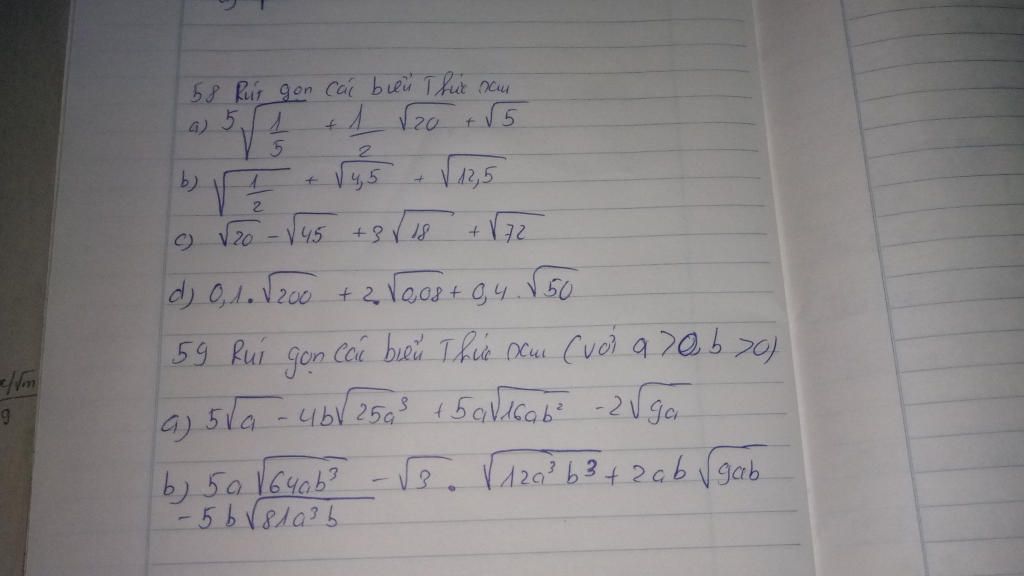 58 Rút gọn các biểu Thức sau
a) 5√(1/5) + 1/2 √20 + √5
b) √(1/2) + √4,5 + √12,5
c) √20 - √45 + 3√18 + √72
d) 0,1.√200 + 2.√0,08 + 0,4.√50
59 Rút gọn các biểu Thức sau (với a>0, b>0)
a) 5√a - 4b√25a³ + 5a√16ab² - 2√9a
b) 5a√64ab³ - √3 . √12a³b³ + 2ab√9ab
- 5b√81a³b